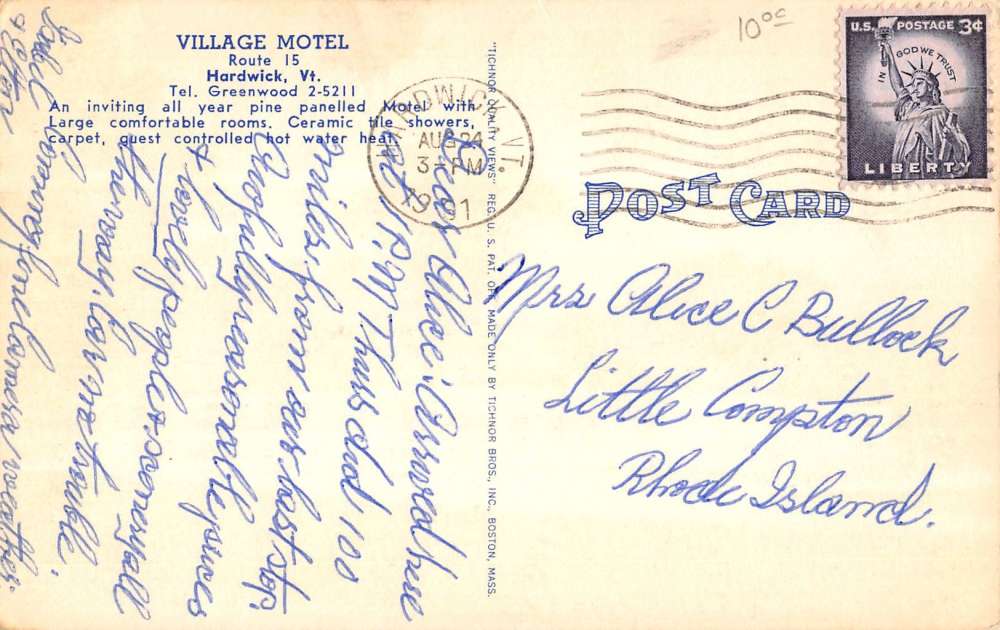 VILLAGE MOTEL
Route 15
Hardwick, Vt.
Tel. Greenwood 2-5211
An inviting all year pine panelled Motel with
Large comfortable rooms. Ceramic tile showers,
carpet, guest controlled hot water heat.
Dear Alice: Arrived here
1 P.M Thurs 100
miles from our last stop.
Awfully reasonable prices
& lovely people & scenery all
the way. Car no trouble.
weather.
Isabel
& Elton
"TICHNOR QUALITY VIEWS" REG. U. S. PAT. OFF. MADE ONLY BY TICHNOR BROS., INC., BOSTON, MASS.
HARDWICK, VT.
AUG 24
3 - PM
1961
10 00
U.S. POSTAGE 3¢
IN GOD WE TRUST
LIBERTY
POST CARD
Mrs Alice C Bullock
Little Compton
Rhode Island.